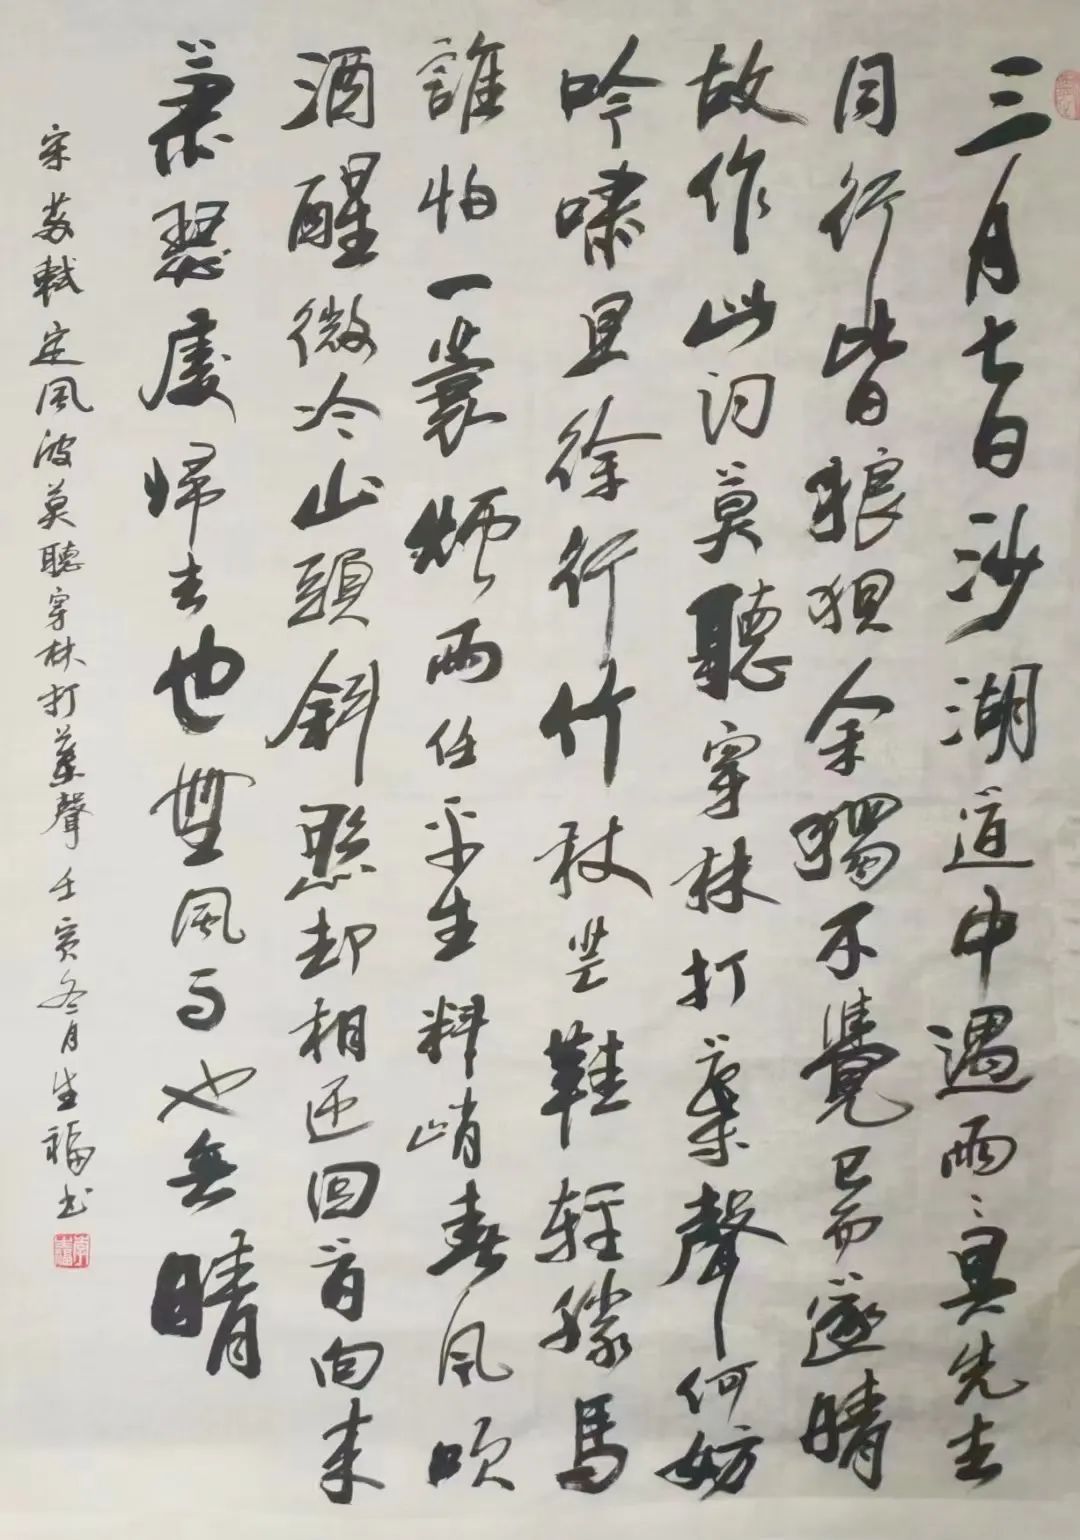 三月七日沙湖道中遇雨〻具先去
同行皆狼狽余獨不覺已而遂晴
故作此词莫聽穿林打葉聲何妨
吟嘯且徐行竹杖芒鞋輕勝馬
誰怕一蓑煙雨任平生料峭春風吹
酒醒微冷山頭斜照却相迎回首向来
蕭瑟處歸去也無風雨也無晴
宋蘇軾定風波莫聽穿林打葉聲 壬寅冬月生福书